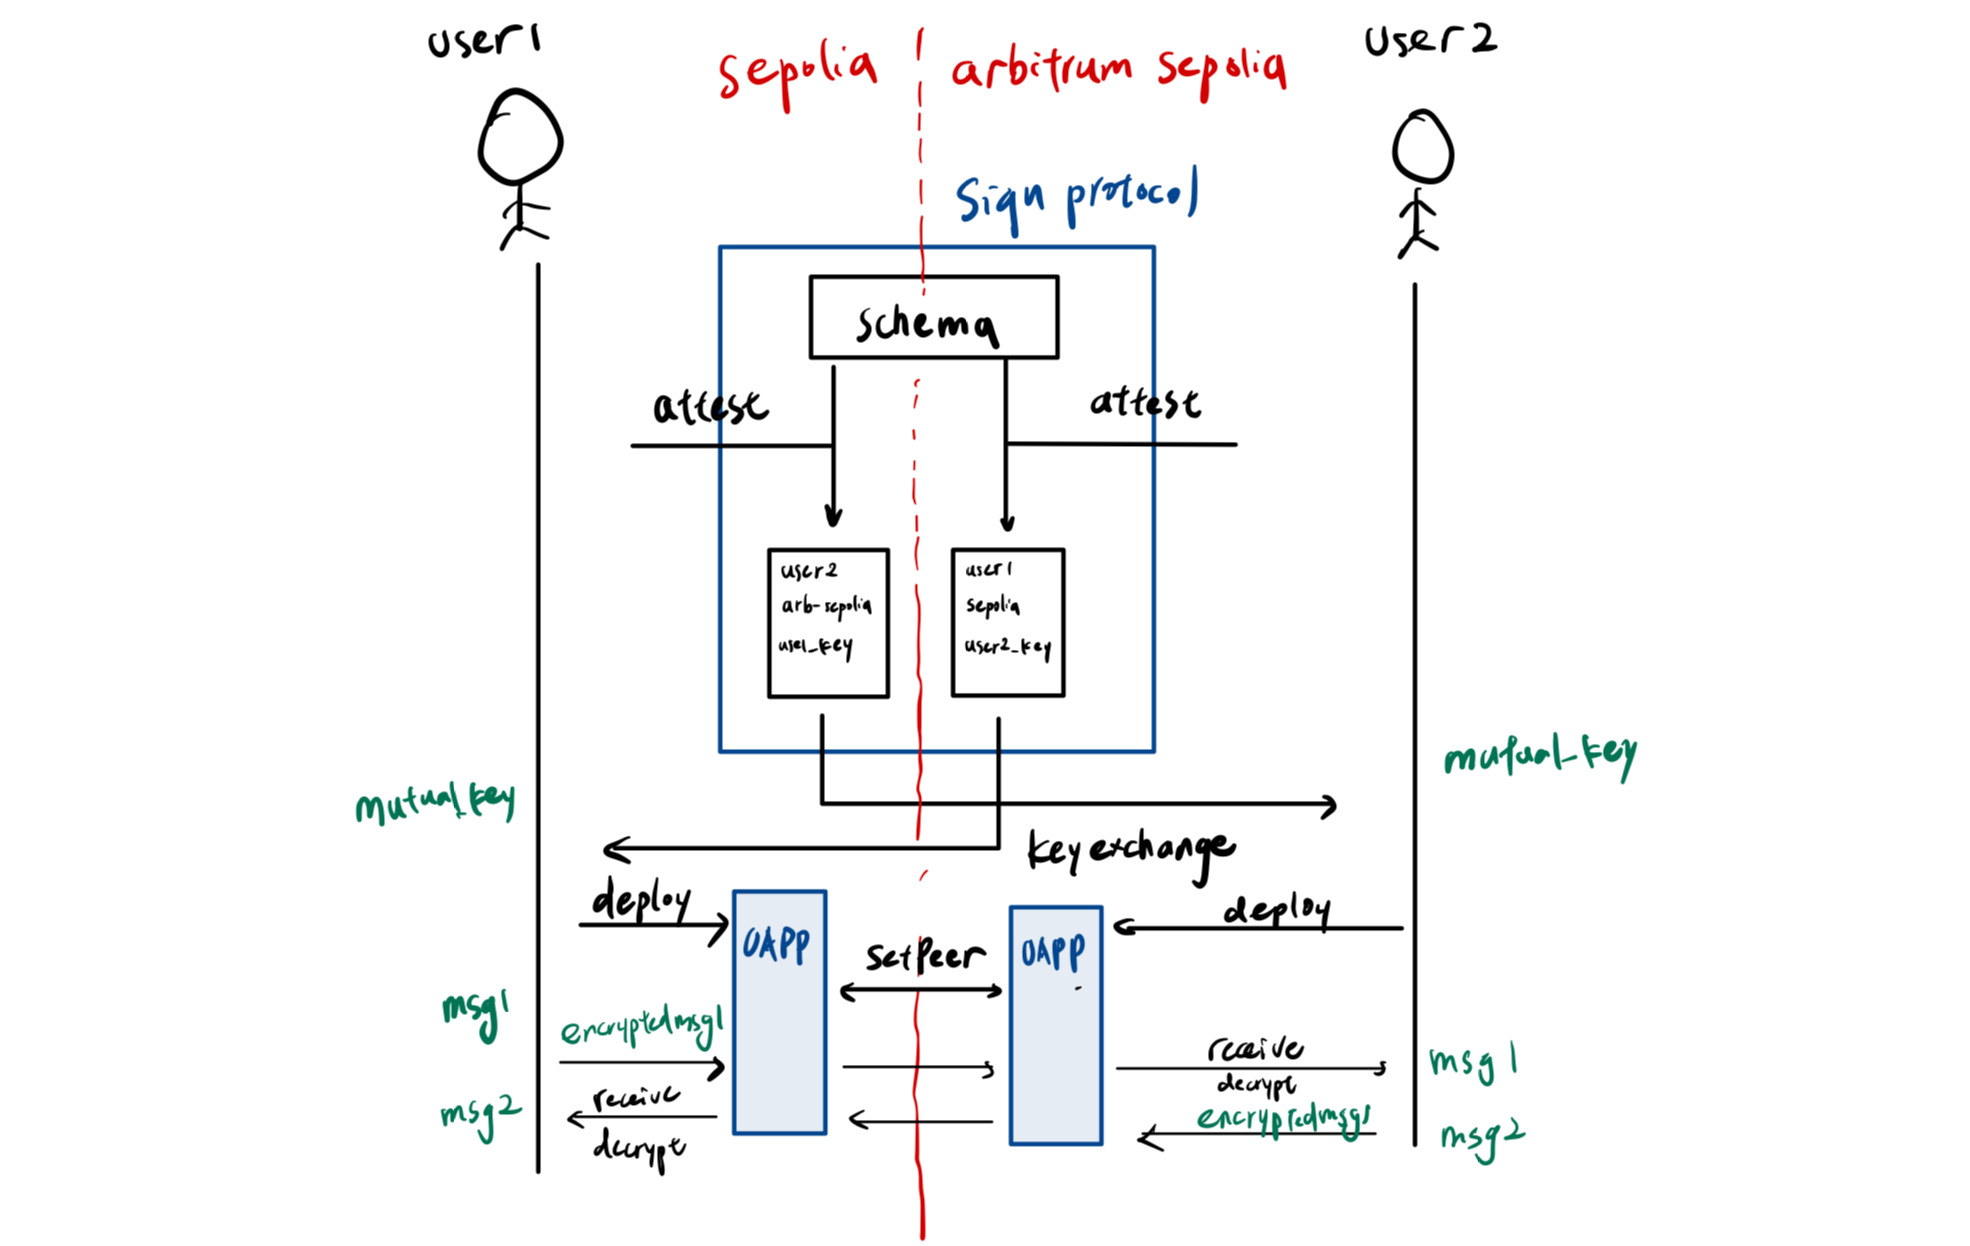 user1
user2
sepolia
arbitrum sepolia
Sign protocol
schema
attest
attest
user2
arb-sepolia
use1_key
user1
sepolia
user2_key
mutual_key
mutual_key
key exchange
deploy
deploy
OAPP
OAPP
setPeer
msg1
encryptedmsg1
receive
decrypt
msg1
msg2
receive
decrypt
encryptedmsg1
msg2